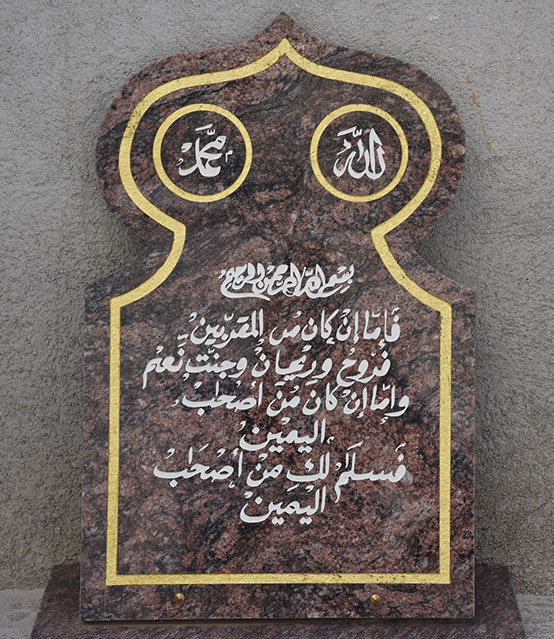 الله
محمد
بسم الله الرحمن الرحيم
فَامّا اِنْ كان من المقربين
فروحُ وريحانْ وجنت نَّعيم
واِمّا اِنْ كانَ منَ أصْحابْ
اليَمينْ
فَسلَمْ لكِ مِنْ أصْحَابْ
اليَمينْ